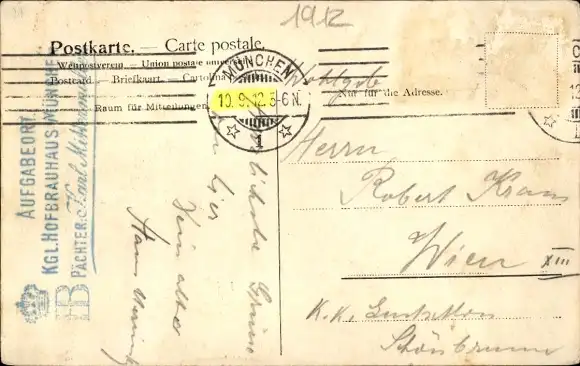 1912
Postkarte. — Carte postale.
Weltpostverein. — Union postale universelle
Postcard. — Briefkaart. — Cartolina
Raum für Mitteilungen
Nur für die Adresse.
MÜNCHEN
10.9.12.5-6N.
1
AUFGABEORT:
KGL. HOFBRAUHAUS MÜNCHEN
PÄCHTER: Karl
HB
Herrn
Robert Kraus
Wien XIII
K. K.
Schönbrunn
Grüsse
von hier
Dein alter
Hans